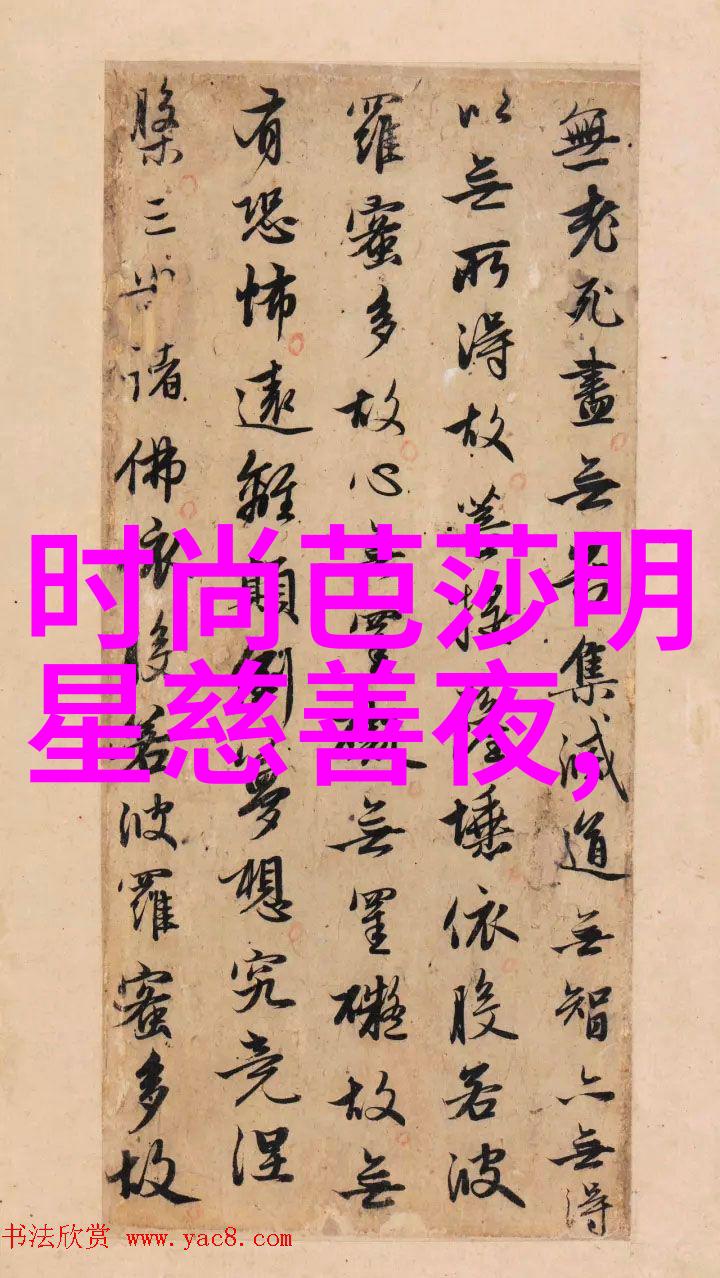 無老死盡無苦集滅道無智亦無得
以無所得故菩提薩埵依般若波
羅蜜多故心無罣礙無罣礙故無
有恐怖遠離顛倒夢想究竟涅
槃三世諸佛依般若波羅蜜多故
时尚芭莎明
星慈善夜,
书法欣赏 www.yac8.com